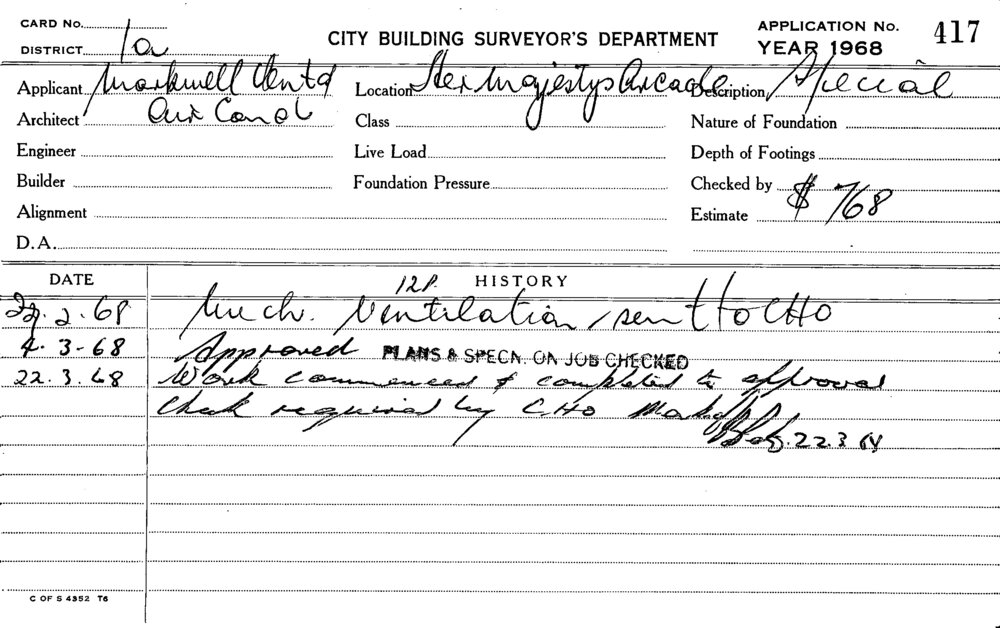 CARD No.
DISTRICT 1a
CITY BUILDING SURVEYOR'S DEPARTMENT
APPLICATION No. 417
YEAR 1968
Applicant Markwell Vent &
Location Her Majestys Arcade
Description Special
Architect Air Cond
Class
Nature of Foundation
Engineer
Live Load
Depth of Footings
Builder
Foundation Pressure
Checked by
Alignment
Estimate $768
D.A.
DATE
12P. HISTORY
2.68 Mech. Ventilation, sent to CHO
4.3-68 Approved PLANS & SPECN. ON JOB CHECKED
22.3.68 Work commenced & completed to approval
Check required by CHO
22.3
C OF S 4352 T6